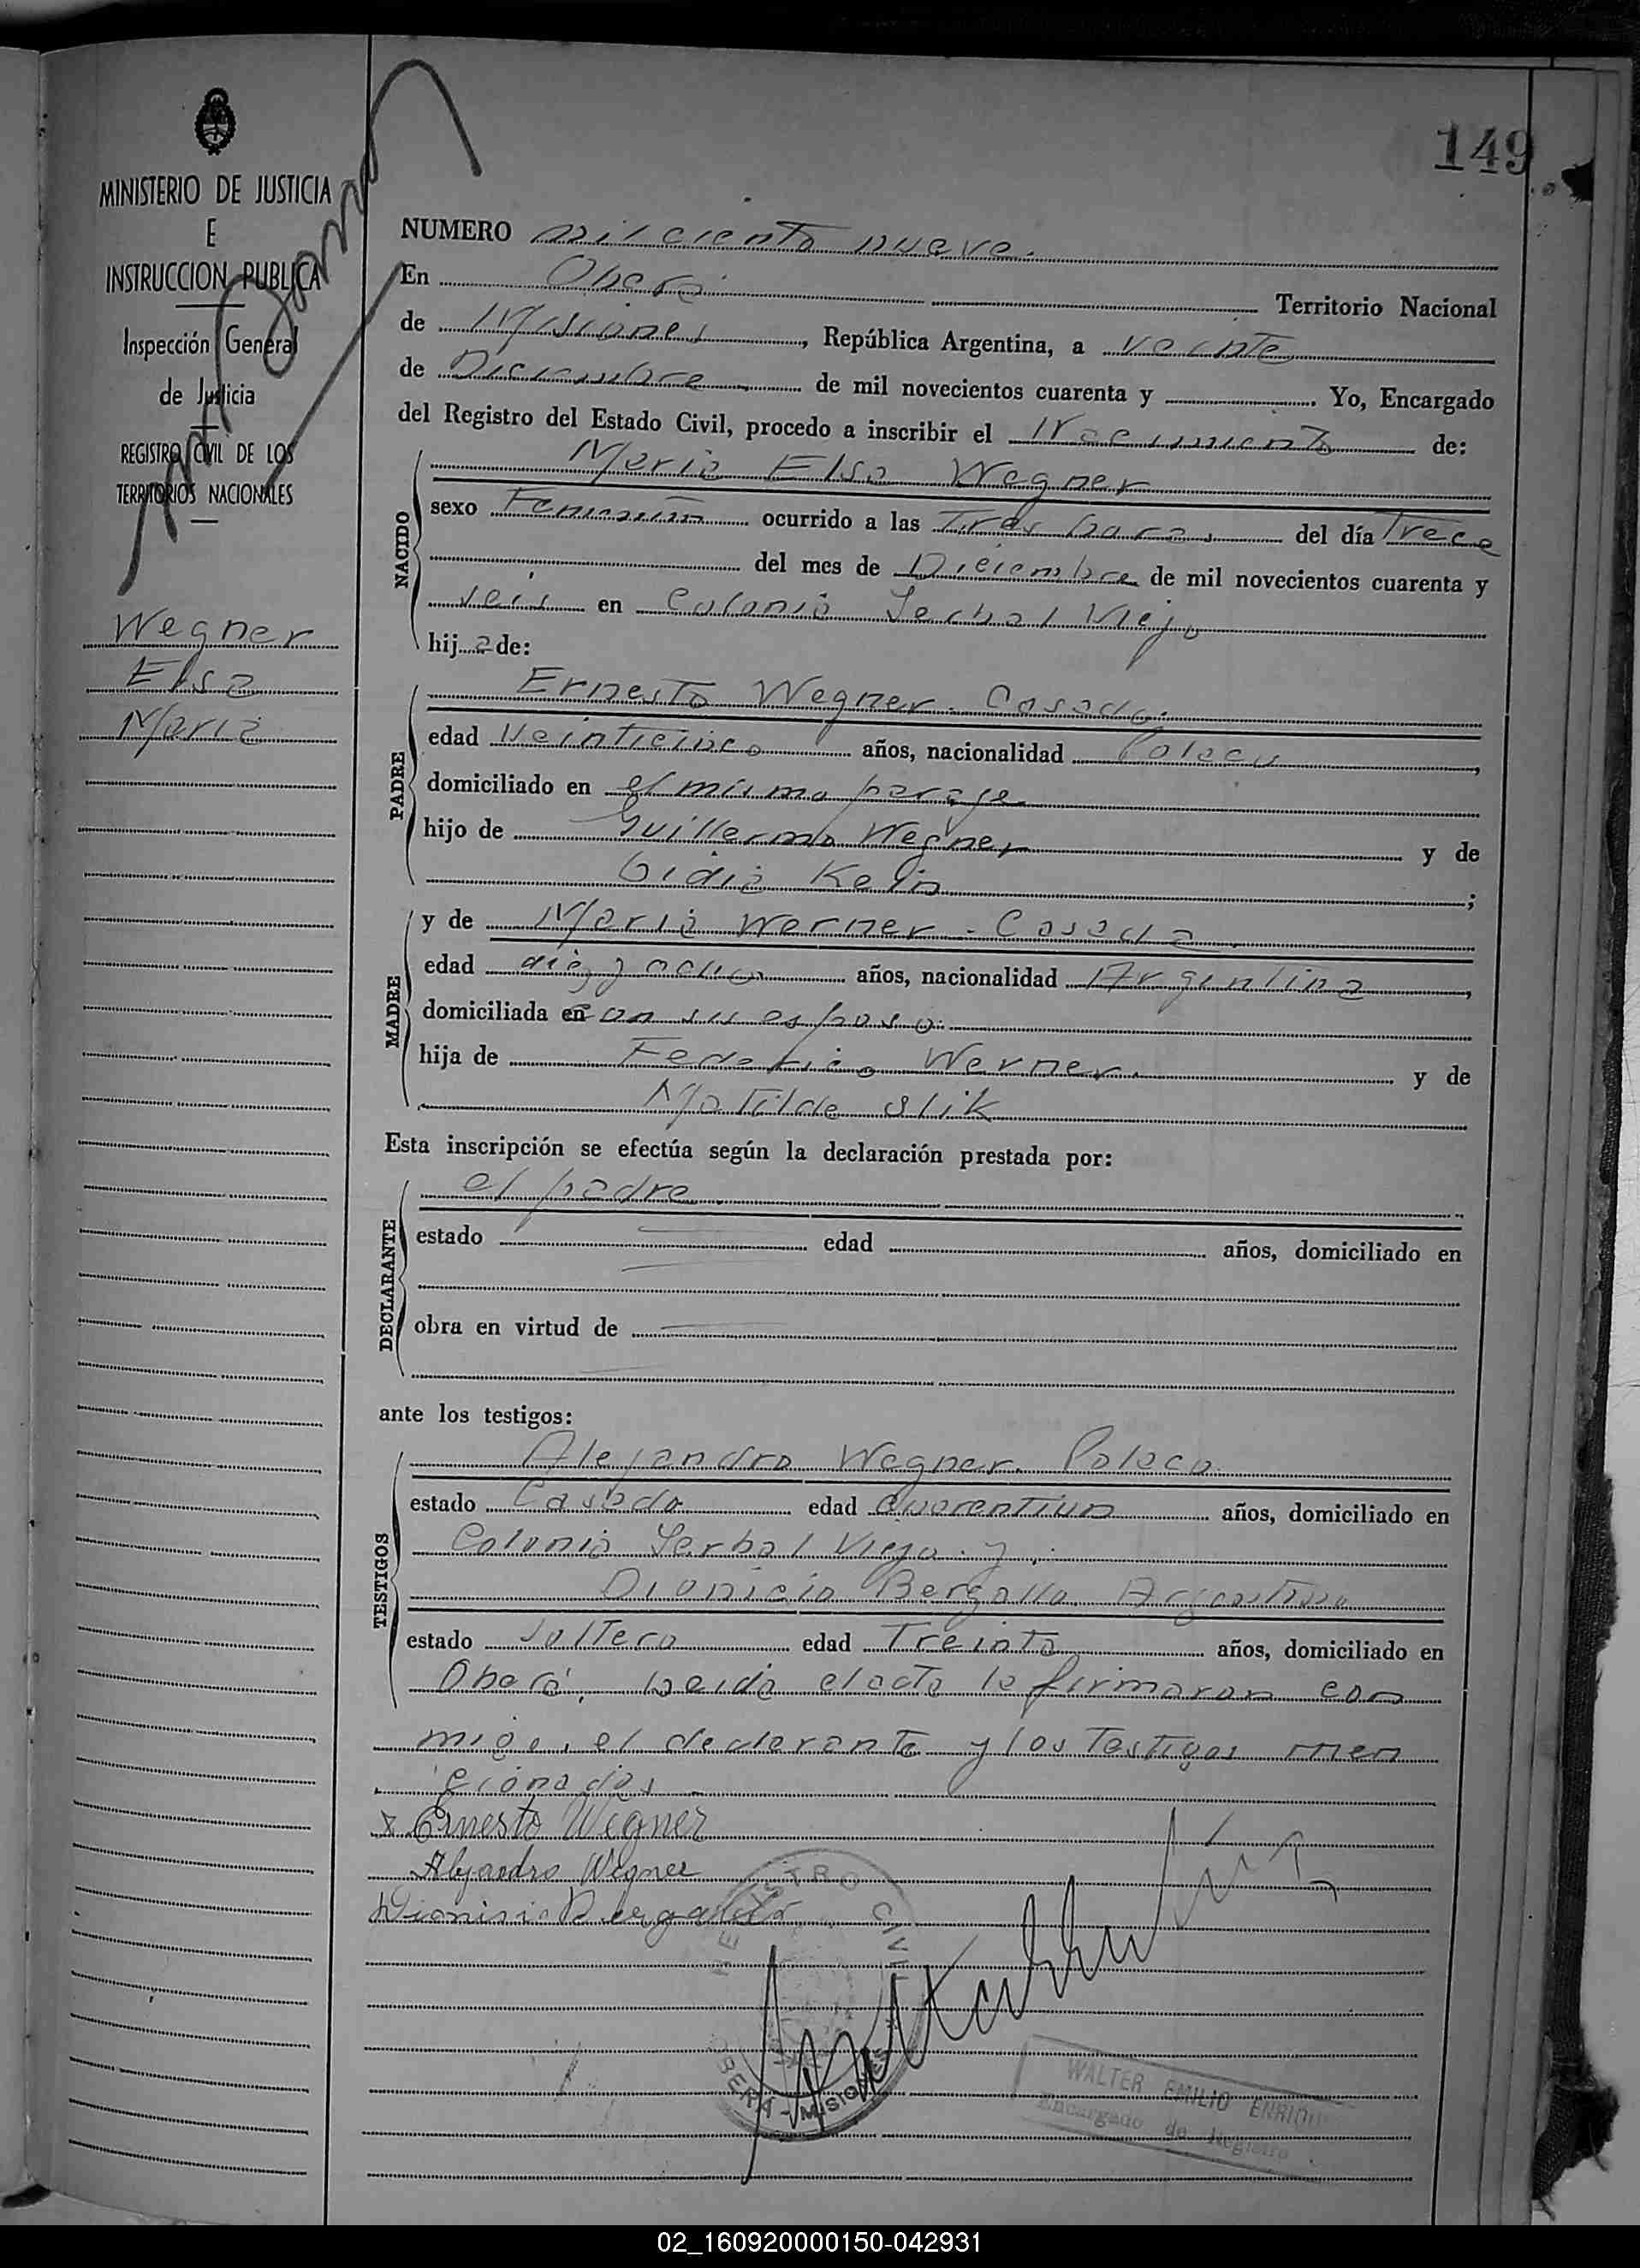 149
MINISTERIO DE JUSTICIA
E
INSTRUCCION PUBLICA
Inspección General
de Justicia
REGISTRO CIVIL DE LOS
TERRITORIOS NACIONALES
Wegner
Elsa
Maria
NUMERO mil ciento nueve.
En Oberá Territorio Nacional
de Misiones, República Argentina, a veinte
de Diciembre de mil novecientos cuarenta y Yo, Encargado
del Registro del Estado Civil, procedo a inscribir el Nacimiento de:
NACIDO
Maria Elsa Wegner
sexo Femenino ocurrido a las Tres horas del día Trece
del mes de Diciembre de mil novecientos cuarenta y
seis en Colonia Yerbal Viejo
hija de:
PADRE
Ernesto Wegner. Casado.
edad Veinticinco años, nacionalidad Polaco,
domiciliado en el mismo paraje
hijo de Guillermo Wegner y de
Kelin;
MADRE
y de Maria Werner - Casada
edad diez y ocho años, nacionalidad Argentina,
domiciliada en con su esposo.
hija de Federico Werner. y de
Matilde Slik
Esta inscripción se efectúa según la declaración prestada por:
DECLARANTE
el padre
estado edad años, domiciliado en
obra en virtud de
ante los testigos:
TESTIGOS
Alejandro Wegner. Polaco
estado Casado edad cuarentiun años, domiciliado en
Colonia Yerbal Viejo. y
Dionicio Argentino
estado Soltero edad Treinta años, domiciliado en
Oberá. Leida el acta la firmaron con
migo, el declarante y los Testigos men
cionados
x Ernesto Wegner
Alejandro Wegner
Dionisio
REGISTRO CIVIL
OBERÁ - MISIONES
WALTER EMILIO
Encargado de Registro
02_160920000150-042931